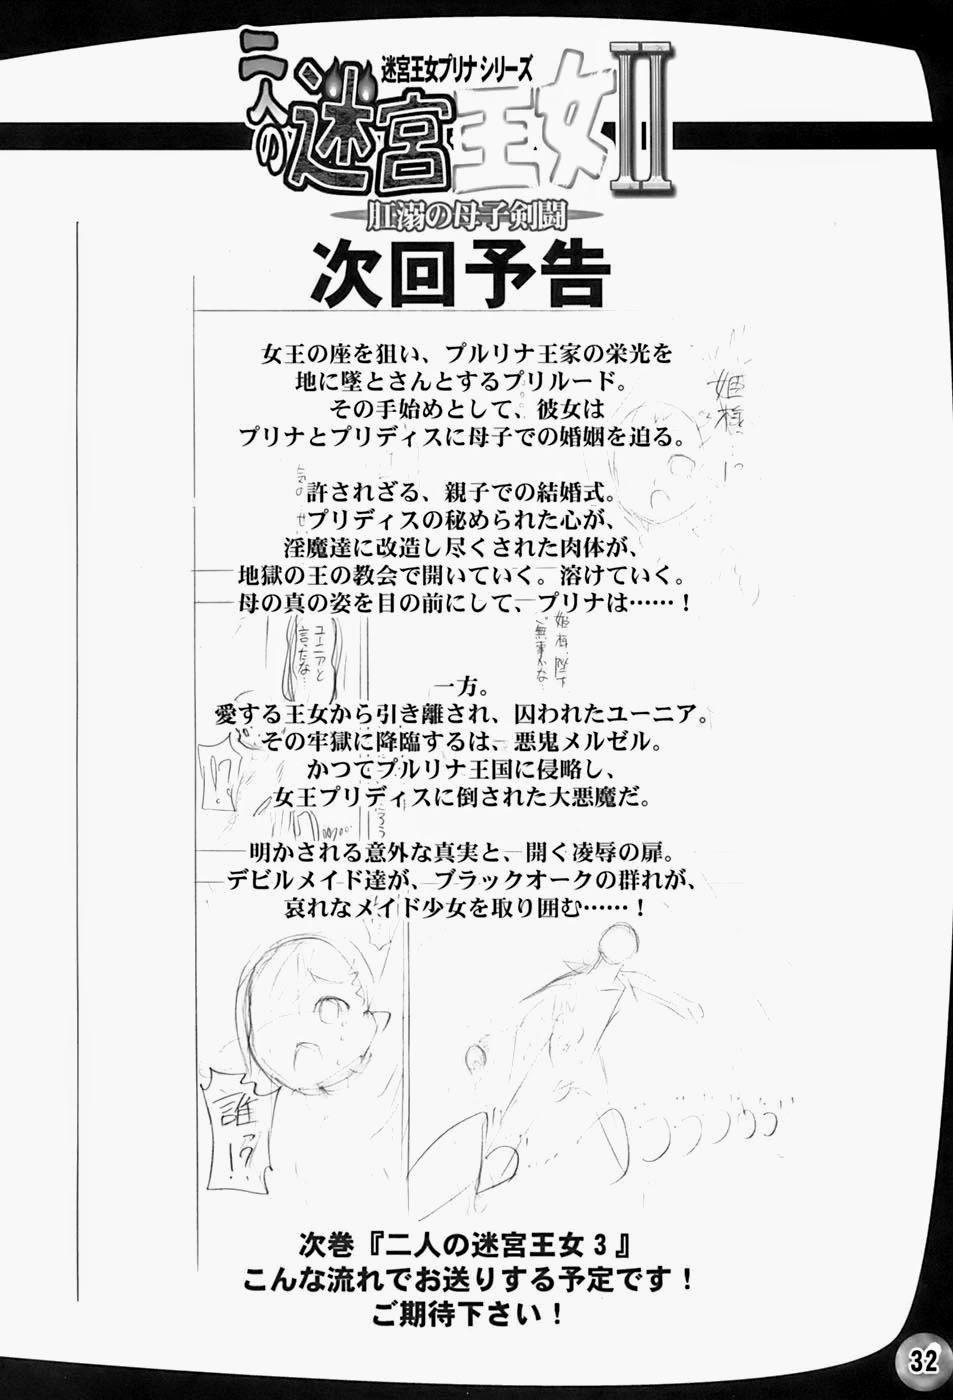 迷宮王女プリナシリーズ
二人の迷宮王女II
肛溺の母子剣闘
次回予告
女王の座を狙い、プルリナ王家の栄光を
地に墜とさんとするプリルード。
その手始めとして、彼女は
プリナとプリディスに母子での婚姻を迫る。
許されざる、親子での結婚式。
プリディスの秘められた心が、
淫魔達に改造し尽くされた肉体が、
地獄の王の教会で開いていく。溶けていく。
母の真の姿を目の前にして、プリナは……！
一方。
愛する王女から引き離され、囚われたユーニア。
その牢獄に降臨するは、悪鬼メルゼル。
かつてプルリナ王国に侵略し、
女王プリディスに倒された大悪魔だ。
明かされる意外な真実と、開く凌辱の扉。
デビルメイド達が、ブラックオークの群れが、
哀れなメイド少女を取り囲む……！
姫様…っ
ユーニアと
言ったな…
姫様、陛下
ご無事かな…
!?
誰!?
次巻『二人の迷宮王女３』
こんな流れでお送りする予定です！
ご期待下さい！
32